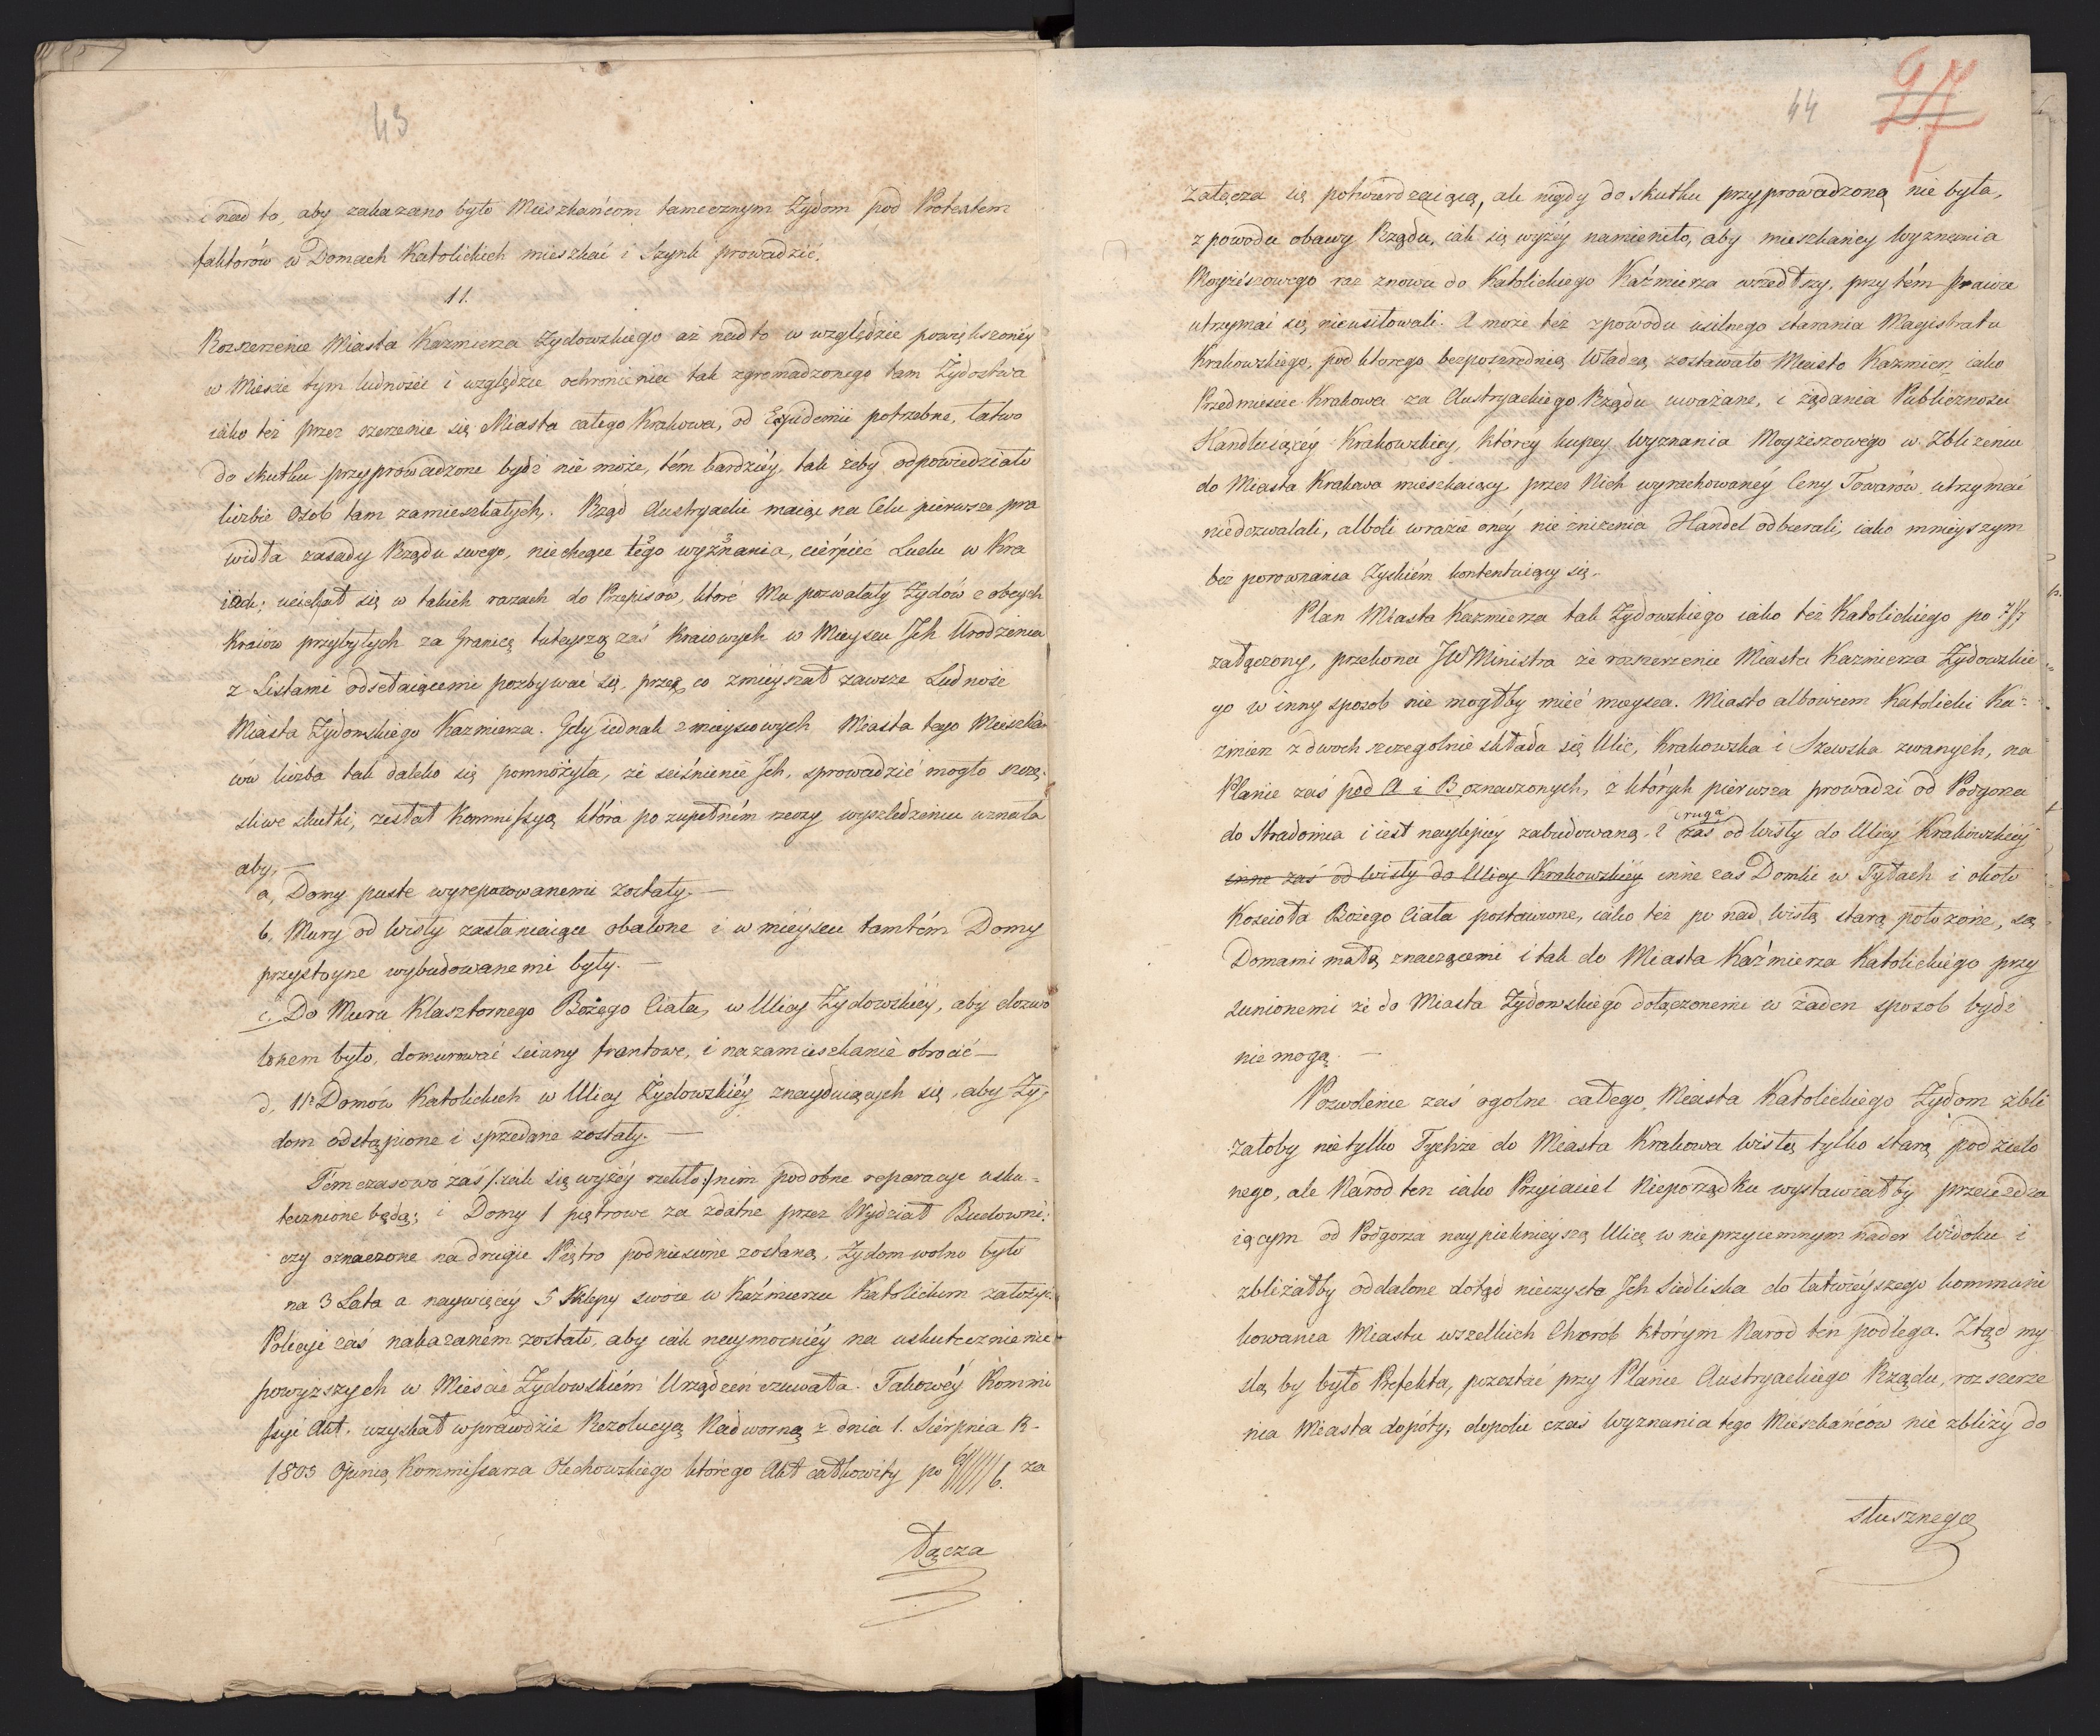 43
i nad to, aby zakazano było Mieszkańcom tamecznym Żydom pod Protextem
faktorów w Domach Katolickich mieszkać i Szynk prowadzić.
11.
Rozszerzenie Miasta Kazmierza Zydowskiego aż nadto w względzie powiększonéy
w Mieście tym ludności i względzie ochronienia tak zgromadzonego tam Żydostwa
iako też przez szerzenie się Miasta całego Krakowa, od Epidemii potrzebne, łatwo
do skutku przyprowadzone bydź nie może, tém bardziéy, tak żeby odpowiedziało
liczbie Osob tam zamieszkałych. Rząd Austryacki maiąc na Celu pierwsze pra
widła zasady Rządu swego, niechcące tego wyznania, cierpieć Ludu w Kra
iach; uciekał się w takich razach do Przepisów, które Mu pozwalały Żydów z obcych
Kraiow przybyłych za Granicę tuteyszą zaś Kraiowych w Mieysca Ich Urodzenia
z Listami odsełaiącemi pozbywać się, przez co zmieyszał zawsze Ludność
Miasta Żydowskiego Kazmierza. Gdy iednak z mieyscowych Miasta tego Mieszkań
ców liczba tak daleko się pomnożyła, że ściśnienie Ich, sprowadzić mogło szczę-
śliwe skutki, zesłał Kommissyą która po zupełném rzeczy wyszledzeniu uznała
aby,—
a, Domy puste wyreparowanemi zostały.—
b, Mury od Wisły zasłaniaiące obalone i w mieyscu tamtém Domy
przystoyne wybudowanemi były.—
c. Do Muru Klasztornego Bożego Ciała, w Ulicy Żydowskiéy, aby dozwo
lonem było, domurować ściany frantowe, i na zamieszkanie obrocić—
d, 11. Domów Katolickich w Ulicy Żydowskiéy znayduiących się, aby Ży-
dom odstąpione i sprzedane zostały.—
Témczasowo zaś /:iak się wyżéy rzekło:/ nim podobne reparacye usku-
tecznione będą; i Domy 1 piętrowe za zdatne przez Wydział Budowni:
czy oznaczone na drugie Piętro podniesione zostaną, Żydom wolno było
na 3 Lata a naywięcey 5 Sklepy swoie w Kaźmierzu Katolickim założyć.
Policyi zaś nakazaném zostało, aby iak naymocniéy na uskutecznienie
powyższych w Mieście Żydowskiém Urządzeń czuwała. Takowéy Kommi
ssyi Akt. uzyskał wprawdzie Rezolucyą Nadworną z dnia 1. Sierpnia R.
1805 Opinią Kommissarza Olechowskiego którego Akt całkowity po 6. za
łącza
44
27
załącza się potwierdzaiącą, ale nigdy do skutku przyprowadzoną nie była,
z powodu obawy Rządu, iak się wyżéy namieniło, aby mieszkańcy Wyznania
Moyżeszowego raz znowu do Katolickiego Kaźmierza wszedłszy, przy tém prawie
utrzymać się, nieusiłowali. A może też z powodu usilnego starania Magistratu
Krakowskiego, pod którego bezpośrednią Władzą zostawało Miasto Kazmierz iako
Przedmieście Krakowa za Austryackiego Rządu uważane, i żądania Publiczności
Handluiącéy Krakowskiéy, którey kupcy Wyznania Moyżeszowego w Zbliżeniu
do Miasta Krakowa mieszkaiący przez Nich wyrachowanéy Ceny Towarów utrzymać
niedozwalali, alboli w razie onéy nie zniżenia Handel odbierali, iako mnieyszym
bez porownania Zyskiém kontentuiący się.
Plan Miasta Kazmierza tak Żydowskiego iako też Katolickiego po 7//
załączony, przekona JW Ministra że rozszerzenie Miasta Kazmierza Żydowskie
go w inny sposob nie mogłby mieć mieysca. Miasto albowiem Katolicki Ka-
zmierz z dwoch szczegolnie składa się Ulic, Krakowska i Szewska zwanych, na
Planie zaś pod A i B oznaczonych, z których pierwsza prowadzi od Podgorza
do Stradomia i iest naylepiéy zabudowaną, druga zaś od Wisły do Ulicy Krakowskiéy
inne zaś od Wisły do Ulicy Krakowskiéy inne zaś Domki w Tyłach i około
Kościoła Bożego Ciała postawione, iako też po nad Wisłą starą położone, są
Domami mało znaczącemi i tak do Miasta Kaźmierza Katolickiego przy
sunionemi że do Miasta Żydowskiego dołączonemi w żaden sposob bydź
nie mogą.—
Pozwolenie zaś ogolne całego Miasta Katolickiego Żydom zbli
żałoby nietylko Tychże do Miasta Krakowa Wisłą tylko starą podzielo
nego, ale Narod ten iako Przyiaciel Nieporządku wystawiałby przeieżdża
iącym od Podgorza naypięknieyszą Ulicę w nieprzyiemnym nader Widoku i
zbliżałby oddalone dotąd nieczyste Ich Siedliska do łatwieyszego kommuni
kowania Miastu wszelkich Chorob którym Narod ten podlega. Ztąd my
slą by było Prefekta, pozostać przy Planie Austryackiego Rządu, rozszerze
nia Miasta dopóty, dopoki czas Wyznania tego Mieszkańców nie zbliży do
słusznego